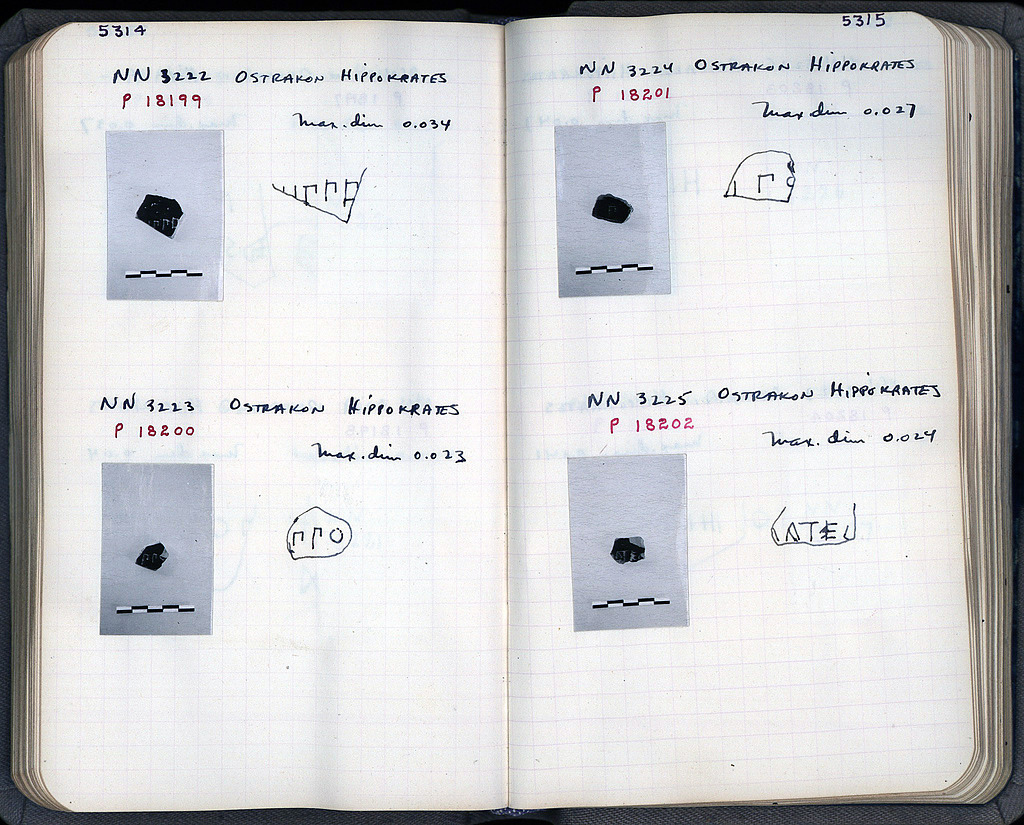 5314
NN 3222 OSTRAKON HIPPOKRATES
P 18199
Max. dim 0.034
NN 3223 OSTRAKON HIPPOKRATES
P 18200
Max. dim 0.023
ΠΠΟ
5315
NN 3224 OSTRAKON HIPPOKRATES
P 18201
Max dim 0.027
NN 3225 OSTRAKON HIPPOKRATES
P 18202
Max. dim 0.024
ΑΤΕ